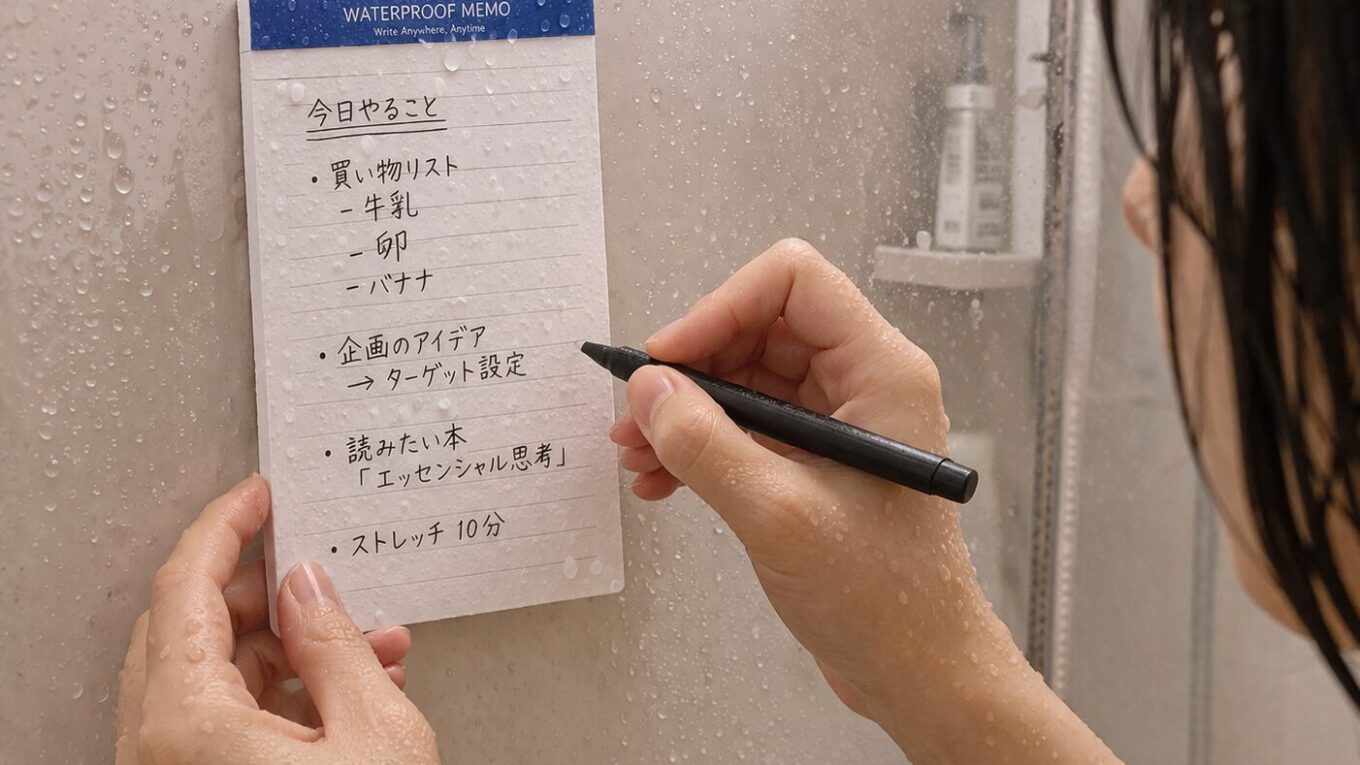 WATERPROOF MEMO
Write Anywhere, Anytime
今日やること
・買い物リスト
- 牛乳
- 卵
- バナナ
・企画のアイデア
→ ターゲット設定
・読みたい本
「エッセンシャル思考」
・ストレッチ 10分